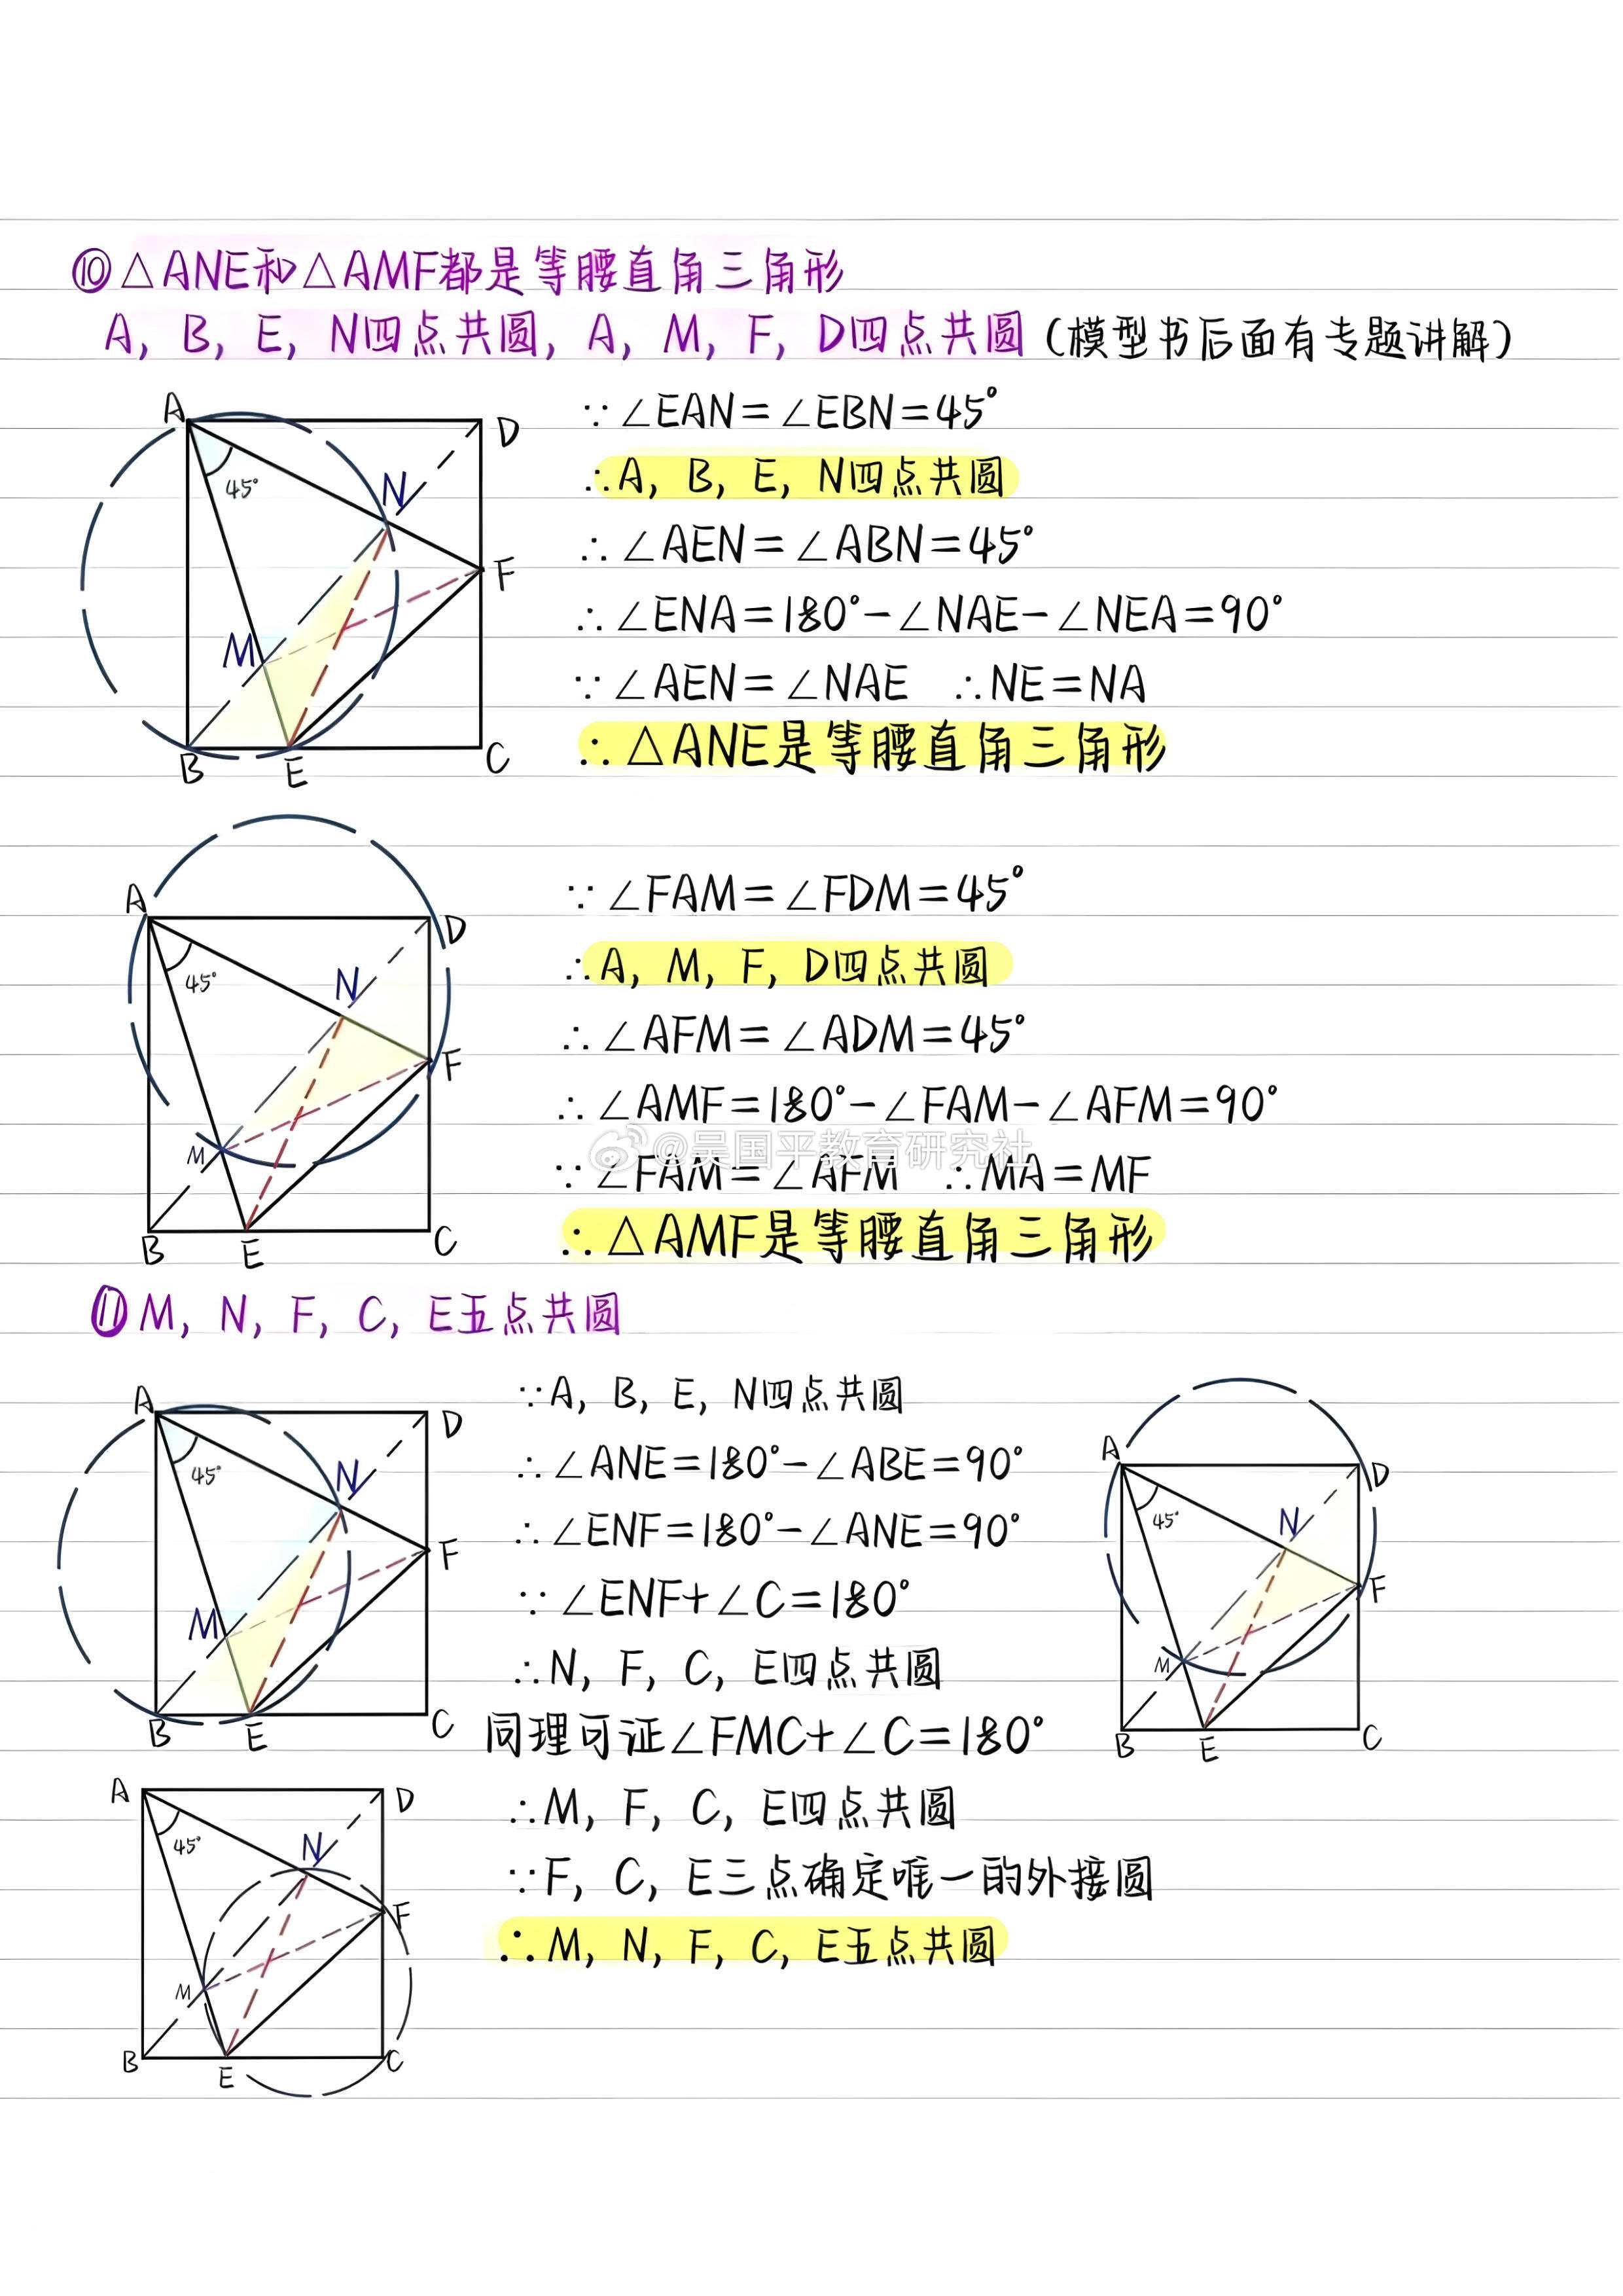 ⑩△ANE和△AMF都是等腰直角三角形
A, B, E, N四点共圆, A, M, F, D四点共圆(模型书后面有专题讲解)
A
D
45°
N
F
M
B
E
C
∵∠EAN=∠EBN=45°
∴A, B, E, N四点共圆
∴∠AEN=∠ABN=45°
∴∠ENA=180°-∠NAE-∠NEA=90°
∵∠AEN=∠NAE ∴NE=NA
∴△ANE是等腰直角三角形
A
D
45°
N
F
M
B
E
C
∵∠FAM=∠FDM=45°
∴A, M, F, D四点共圆
∴∠AFM=∠ADM=45°
∴∠AMF=180°-∠FAM-∠AFM=90°
@吴国平教育研究社
∵∠FAM=∠AFM ∴MA=MF
∴△AMF是等腰直角三角形
⑪M, N, F, C, E五点共圆
A
D
45°
N
F
M
B
E
C
∵A, B, E, N四点共圆
∴∠ANE=180°-∠ABE=90°
∴∠ENF=180°-∠ANE=90°
∵∠ENF+∠C=180°
∴N, F, C, E四点共圆
同理可证∠FMC+∠C=180°
∴M, F, C, E四点共圆
∵F, C, E三点确定唯一的外接圆
∴M, N, F, C, E五点共圆
A
D
45°
N
F
M
B
E
C
A
D
45°
N
F
M
B
E
C